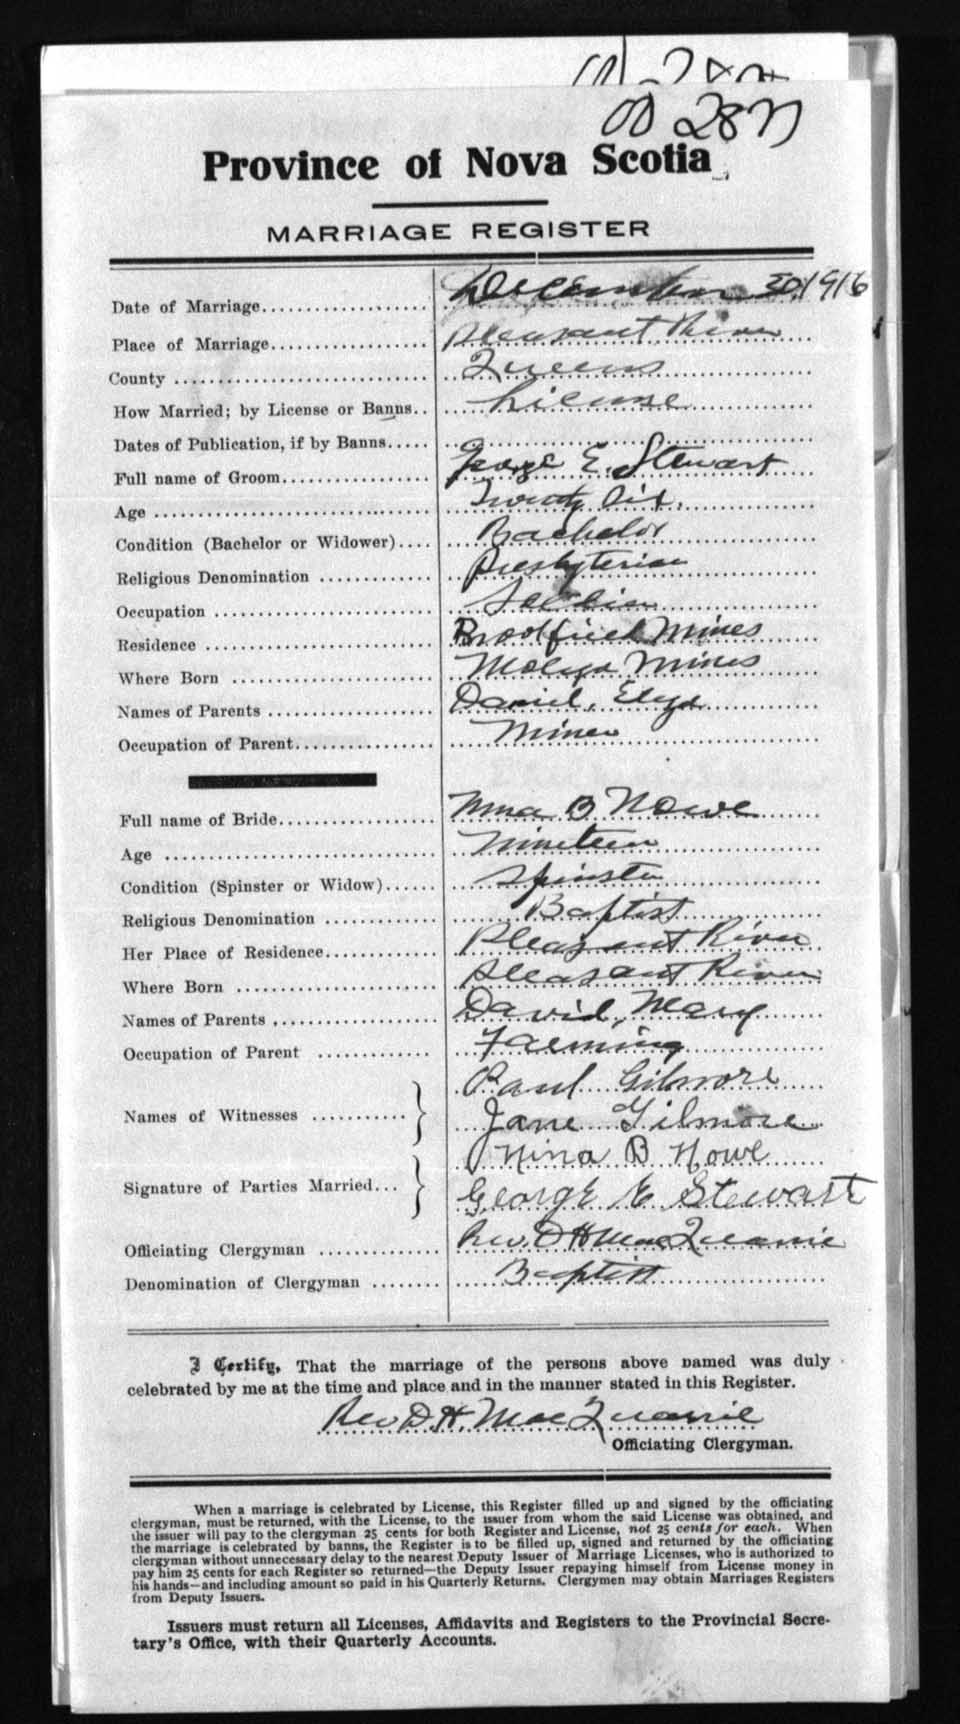 00 287
Province of Nova Scotia
MARRIAGE REGISTER
Date of Marriage December 30, 1916
Place of Marriage Pleasant River
County Queens
How Married; by License or Banns License
Dates of Publication, if by Banns
Full name of Groom George E. Stewart
Age Twenty Six.
Condition (Bachelor or Widower) Bachelor
Religious Denomination Presbyterian
Occupation Soldier
Residence Brookfield Mines
Where Born Molega Mines
Names of Parents Daniel, Elyza
Occupation of Parent Miner
Full name of Bride Nina B Nowe
Age Nineteen
Condition (Spinster or Widow) Spinster
Religious Denomination Baptist
Her Place of Residence Pleasant River
Where Born Pleasant River
Names of Parents David, Mary
Occupation of Parent Farming
Paul Gilmore
Names of Witnesses Jane Gilmore
Nina B Nowe
Signature of Parties Married George E Stewart
Officiating Clergyman Rev. D H MacQuarrie
Denomination of Clergyman Baptist
I Certify, That the marriage of the persons above named was duly
celebrated by me at the time and place and in the manner stated in this Register.
Rev D. H. MacQuarrie
Officiating Clergyman.
When a marriage is celebrated by License, this Register filled up and signed by the officiating
clergyman, must be returned, with the License, to the issuer from whom the said License was obtained, and
the issuer will pay to the clergyman 25 cents for both Register and License, not 25 cents for each. When
the marriage is celebrated by banns, the Register is to be filled up, signed and returned by the officiating
clergyman without unnecessary delay to the nearest Deputy Issuer of Marriage Licenses, who is authorized to
pay him 25 cents for each Register so returned—the Deputy Issuer repaying himself from License money in
his hands—and including amount so paid in his Quarterly Returns. Clergymen may obtain Marriages Registers
from Deputy Issuers.
Issuers must return all Licenses, Affidavits and Registers to the Provincial Secre-
tary's Office, with their Quarterly Accounts.